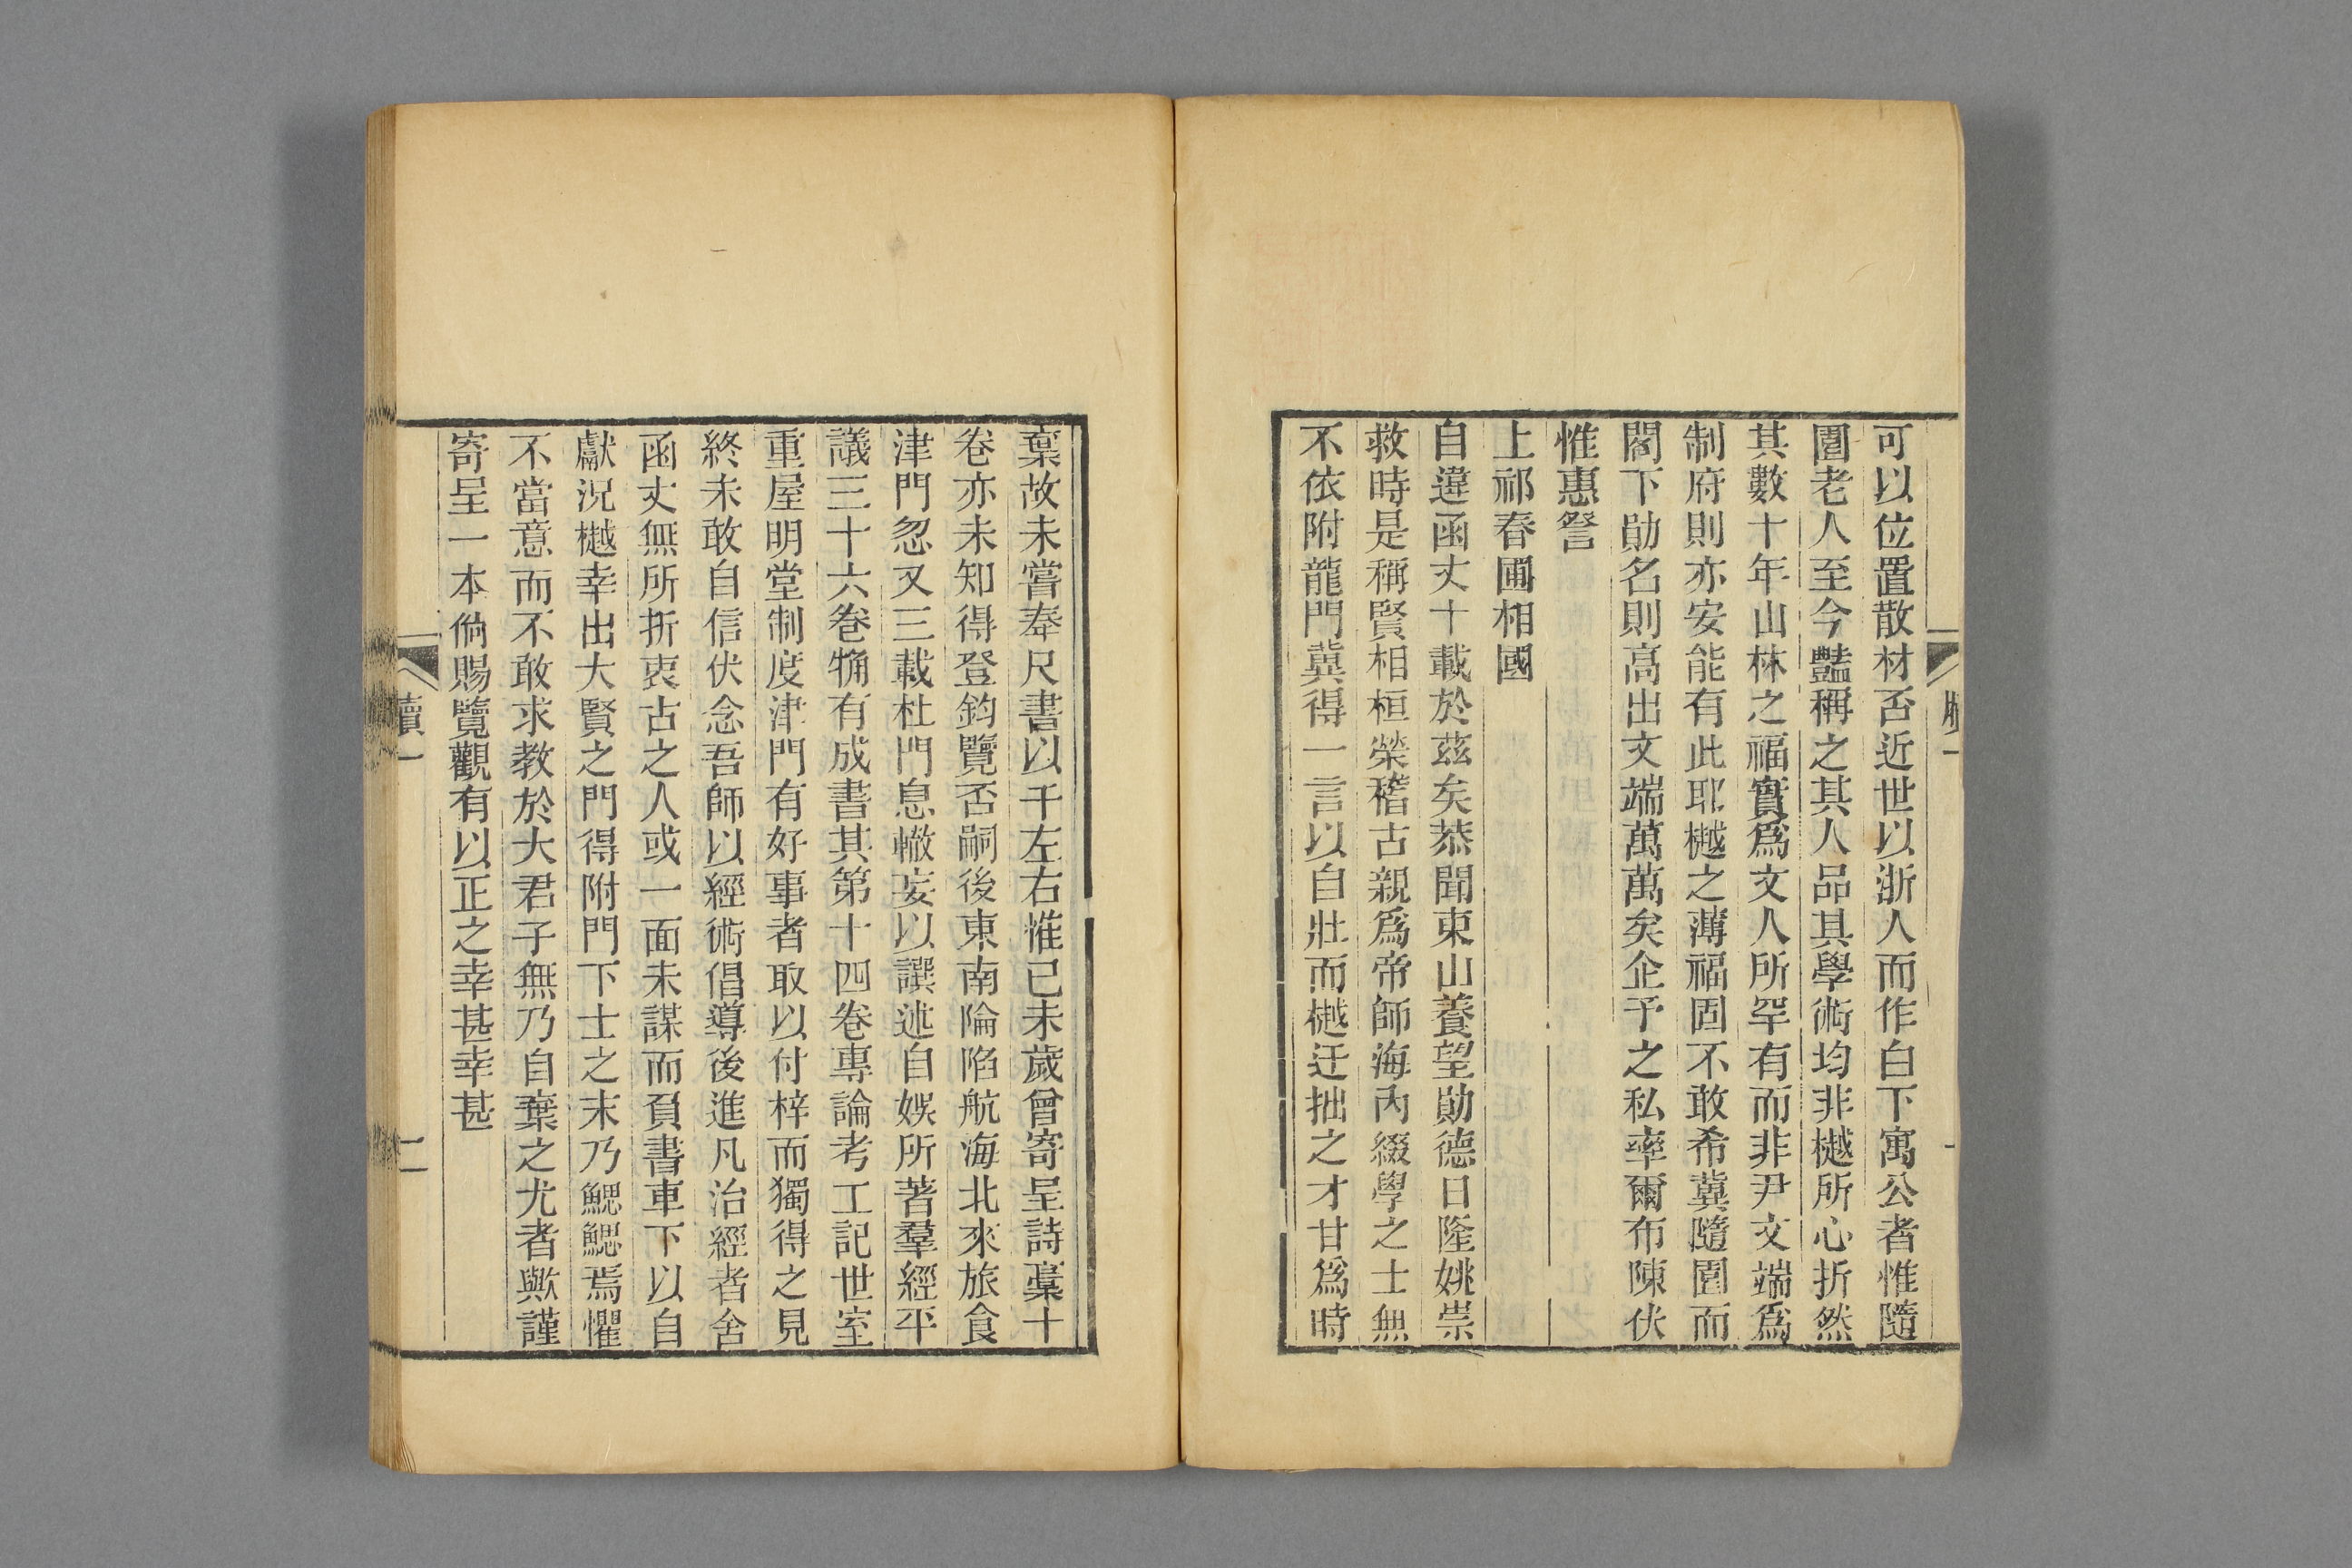 可以位置散材否近世以浙人而作白下寓公者惟隨
園老人至今豔稱之其人品其學術均非樾所心折然
其數十年山林之福實爲文人所罕有而非尹文端爲
制府則亦安能有此耶樾之薄福固不敢希冀隨園而
閣下勛名則高出文端萬萬矣企予之私率爾布陳伏
惟惠詧
上祁春圃相國
自違函丈十載於茲矣恭聞東山養望勛德日隆姚崇
救時是稱賢相桓榮稽古親爲帝師海內綴學之士無
不依附龍門冀得一言以自壯而樾迂拙之才甘爲時
棄故未嘗奉尺書以干左右惟己未歲曾寄呈詩稾十
卷亦未知得登鈞覽否嗣後東南淪陷航海北來旅食
津門忽又三載杜門息轍妄以譔述自娛所著羣經平
議三十六卷觕有成書其第十四卷專論考工記世室
重屋明堂制度津門有好事者取以付梓而獨得之見
終未敢自信伏念吾師以經術倡導後進凡治經者舍
函丈無所折衷古之人或一面未謀而負書車下以自
獻況樾幸出大賢之門得附門下士之末乃鰓鰓焉懼
不當意而不敢求教於大君子無乃自棄之尤者歟謹
寄呈一本倘賜覽觀有以正之幸甚幸甚
牘一
二